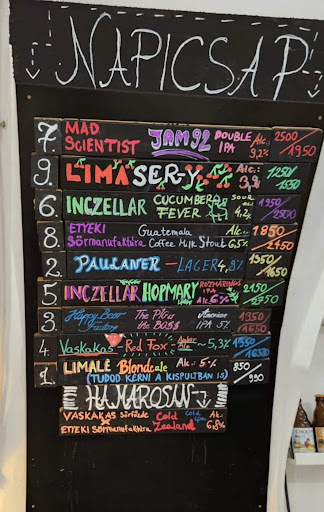 NAPICSAP
7. MAD SCIENTIST JAM92 DOUBLE IPA Alc.: 9,2% 2500/1950
9. LIMA SER-Y Alc.: 3,9% 1250/1550
6. INCZELLÁR CUCUMBER FEVER SOUR 4,2% 1950/2500
8. ETYEKI Sörmanufaktúra Guatemala Coffee Milk Stout Alc.: 6.5% 1850/2450
2. PAULANER -LAGER 4,8% 1350/1650
5. INCZELLÁR HOPMARY ROZMARINGOS IPA Alc. 6% 2150/2750
3. Happy Beer Factory The Pig's the BOSS American IPA 5% 1350/1650
4. Vaskakas - Red Fox - Amber Ale ~ 5,3% 1350/1650
1. LIMALÉ Blonde ale Alc.: 5% 850/990
(TUDOD KÉRNI A KISPULTBAN IS)
HAMAROSAN
VASKAKAS Sörfőzde Cold Cold IPA Alc.:
X
ETYEKI Sörmanufaktúra Zealand 6,8%